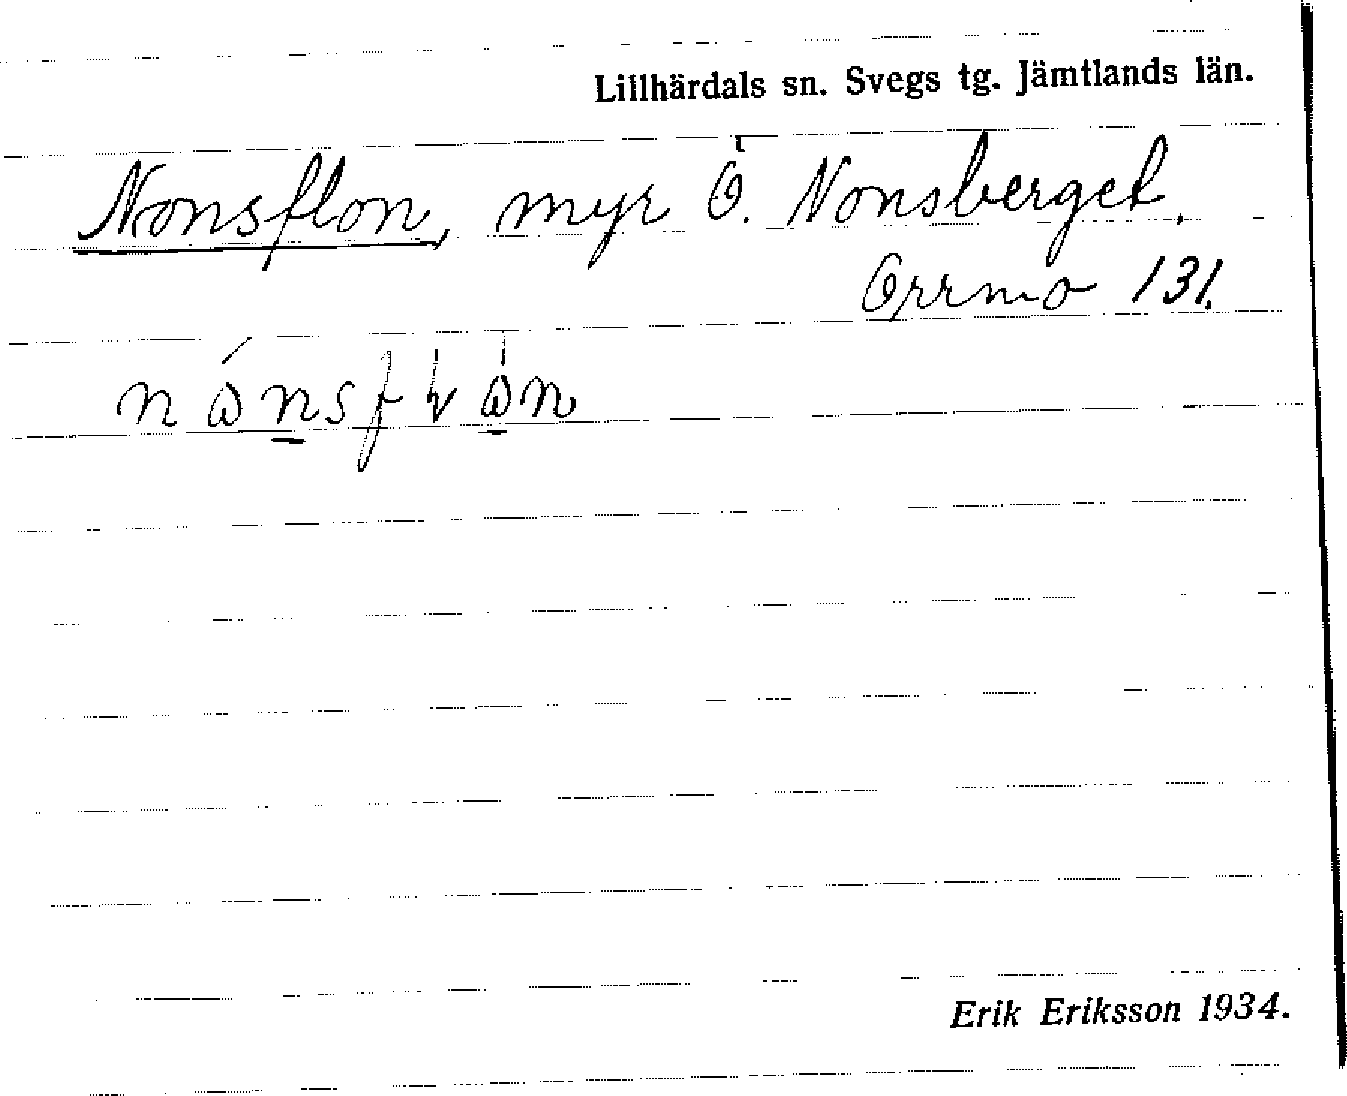 Lillhärdals sn. Svegs tg. Jämtlands län.
Nonsflon, myr Ö. Nonsberget.
Orrmo 131.
Erik Eriksson 1934.